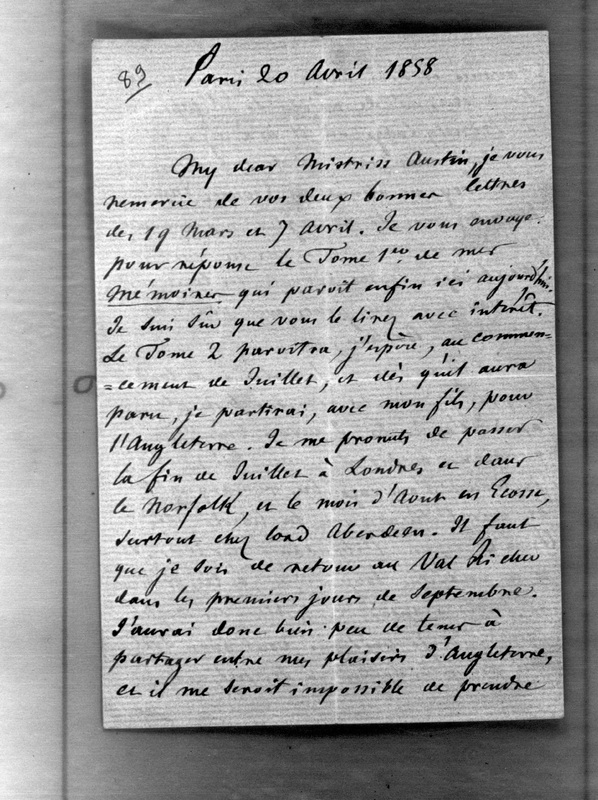 89
Paris 20 Avril 1858
My dear Mistriss Austin, je vous
remercie de vos deux bonnes lettres
des 19 Mars et 7 Avril. Je vous envoye
pour réponse le Tome 1er de mes
Mémoires qui paroit enfin ici aujourd'hui.
Je suis sûr que vous le lirez avec intérêt.
Le Tome 2 paroitra, j'espère, au commen=
=cement de Juillet, et dès qu'il aura
paru, je partirai, avec mon fils, pour
l'Angleterre. Je me promets de passer
la fin de Juillet à Londres et dans
le Norfolk, et le mois d'Aout en Ecosse,
surtout chez lord Aberdeen. Il faut
que je sois de retour au Val Richer
dans les premiers jours de Septembre.
J'aurai donc bien peu de tems à
partager entre mes plaisirs d'Angleterre,
et il me seroit impossible de prendre